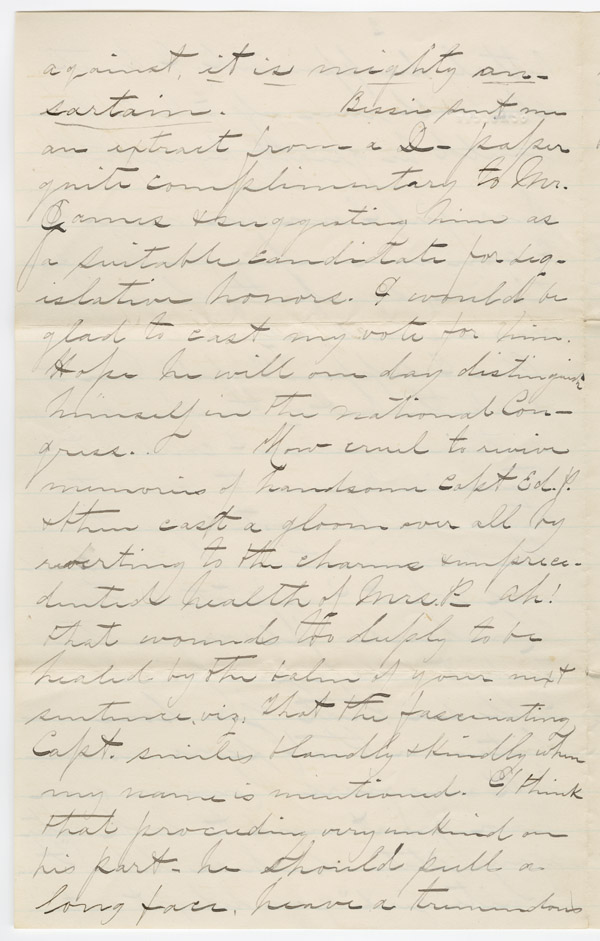 against, it is mighty on-
sartain. Bessie sent me
an extract from a D- paper
quite complimentary to Mr.
Eames & suggesting him as
a suitable candidate for leg-
islative honors. I would be
glad to cast my vote for him.
Hope he will one day distinguish
himself in the National Con-
gress. . How cruel to revive
memories of handsome Capt Ed. P.
& then cast a gloom over all by
reverting to the charms & unprece-
dented health of Mrs. P. Ah!
that wounds too deeply to be
healed by the balm of your next
sentence, viz, that the fascinating
Capt. smiles blandly & kindly when
my name is mentioned. I think
that proceeding very unkind on
his part - he should pull a
long face, heave a tremendous